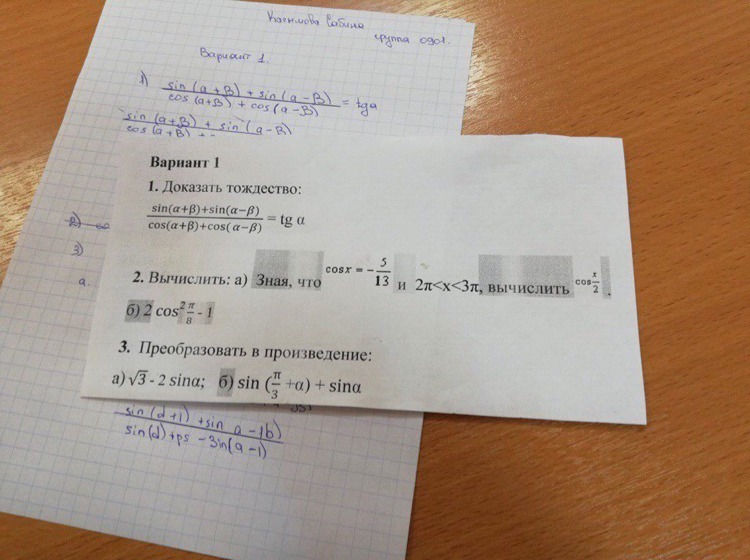 группа 0901.
Вариант 1.
1) sin(a+β) + sin(a-β) / cos(a+β) + cos(a-β) = tga
sin(a+β) + sin(a-β)
cos(a+β) +
Вариант 1
1. Доказать тождество:
sin(α+β)+sin(α−β) / cos(α+β)+cos(α−β) = tg α
2. Вычислить: а) Зная, что cosx = −5/13 и 2π<x<3π, вычислить cos x/2 .
б) 2 cos² π/8 - 1
3. Преобразовать в произведение:
а) √3 - 2 sinα; б) sin (π/3 +α) + sinα
2)
3)
а.
sin(d+1) + sin a - 1b)
sin(d)+ps - 3in(a-1)